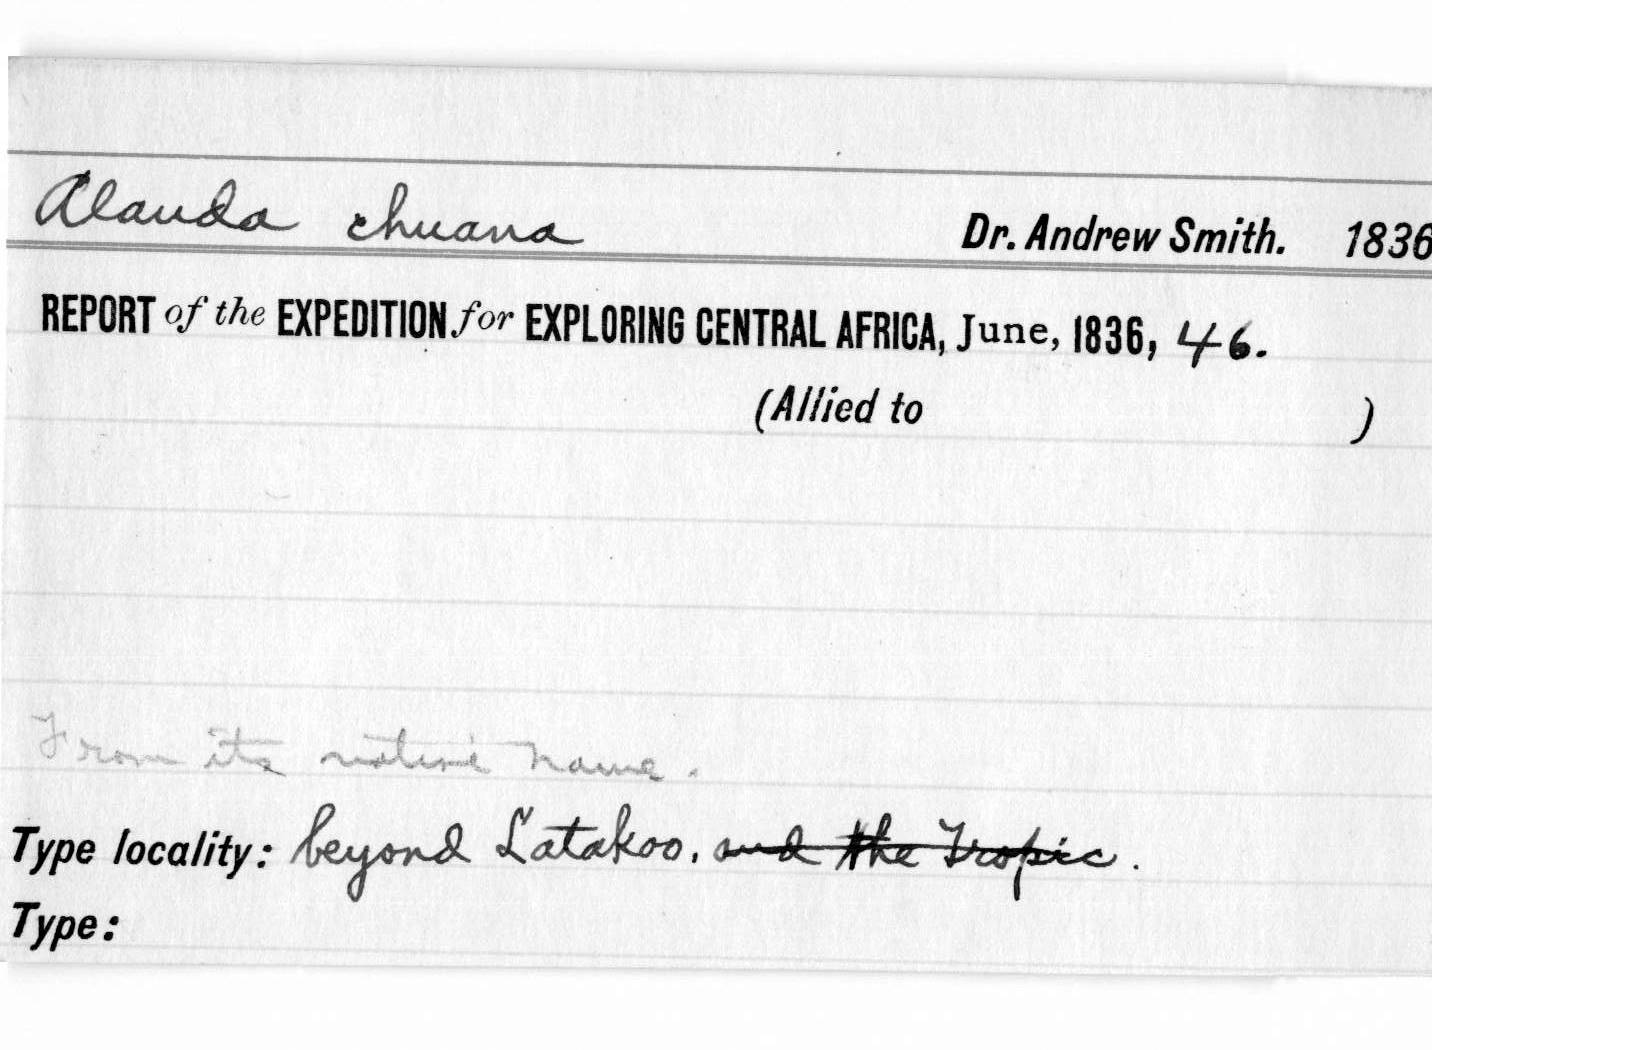 Alauda chuana Dr. Andrew Smith. 1836
REPORT of the EXPEDITION for EXPLORING CENTRAL AFRICA, June, 1836, 46.
(Allied to )
From its native name.
Type locality: beyond Latakoo, and the Tropic.
Type: